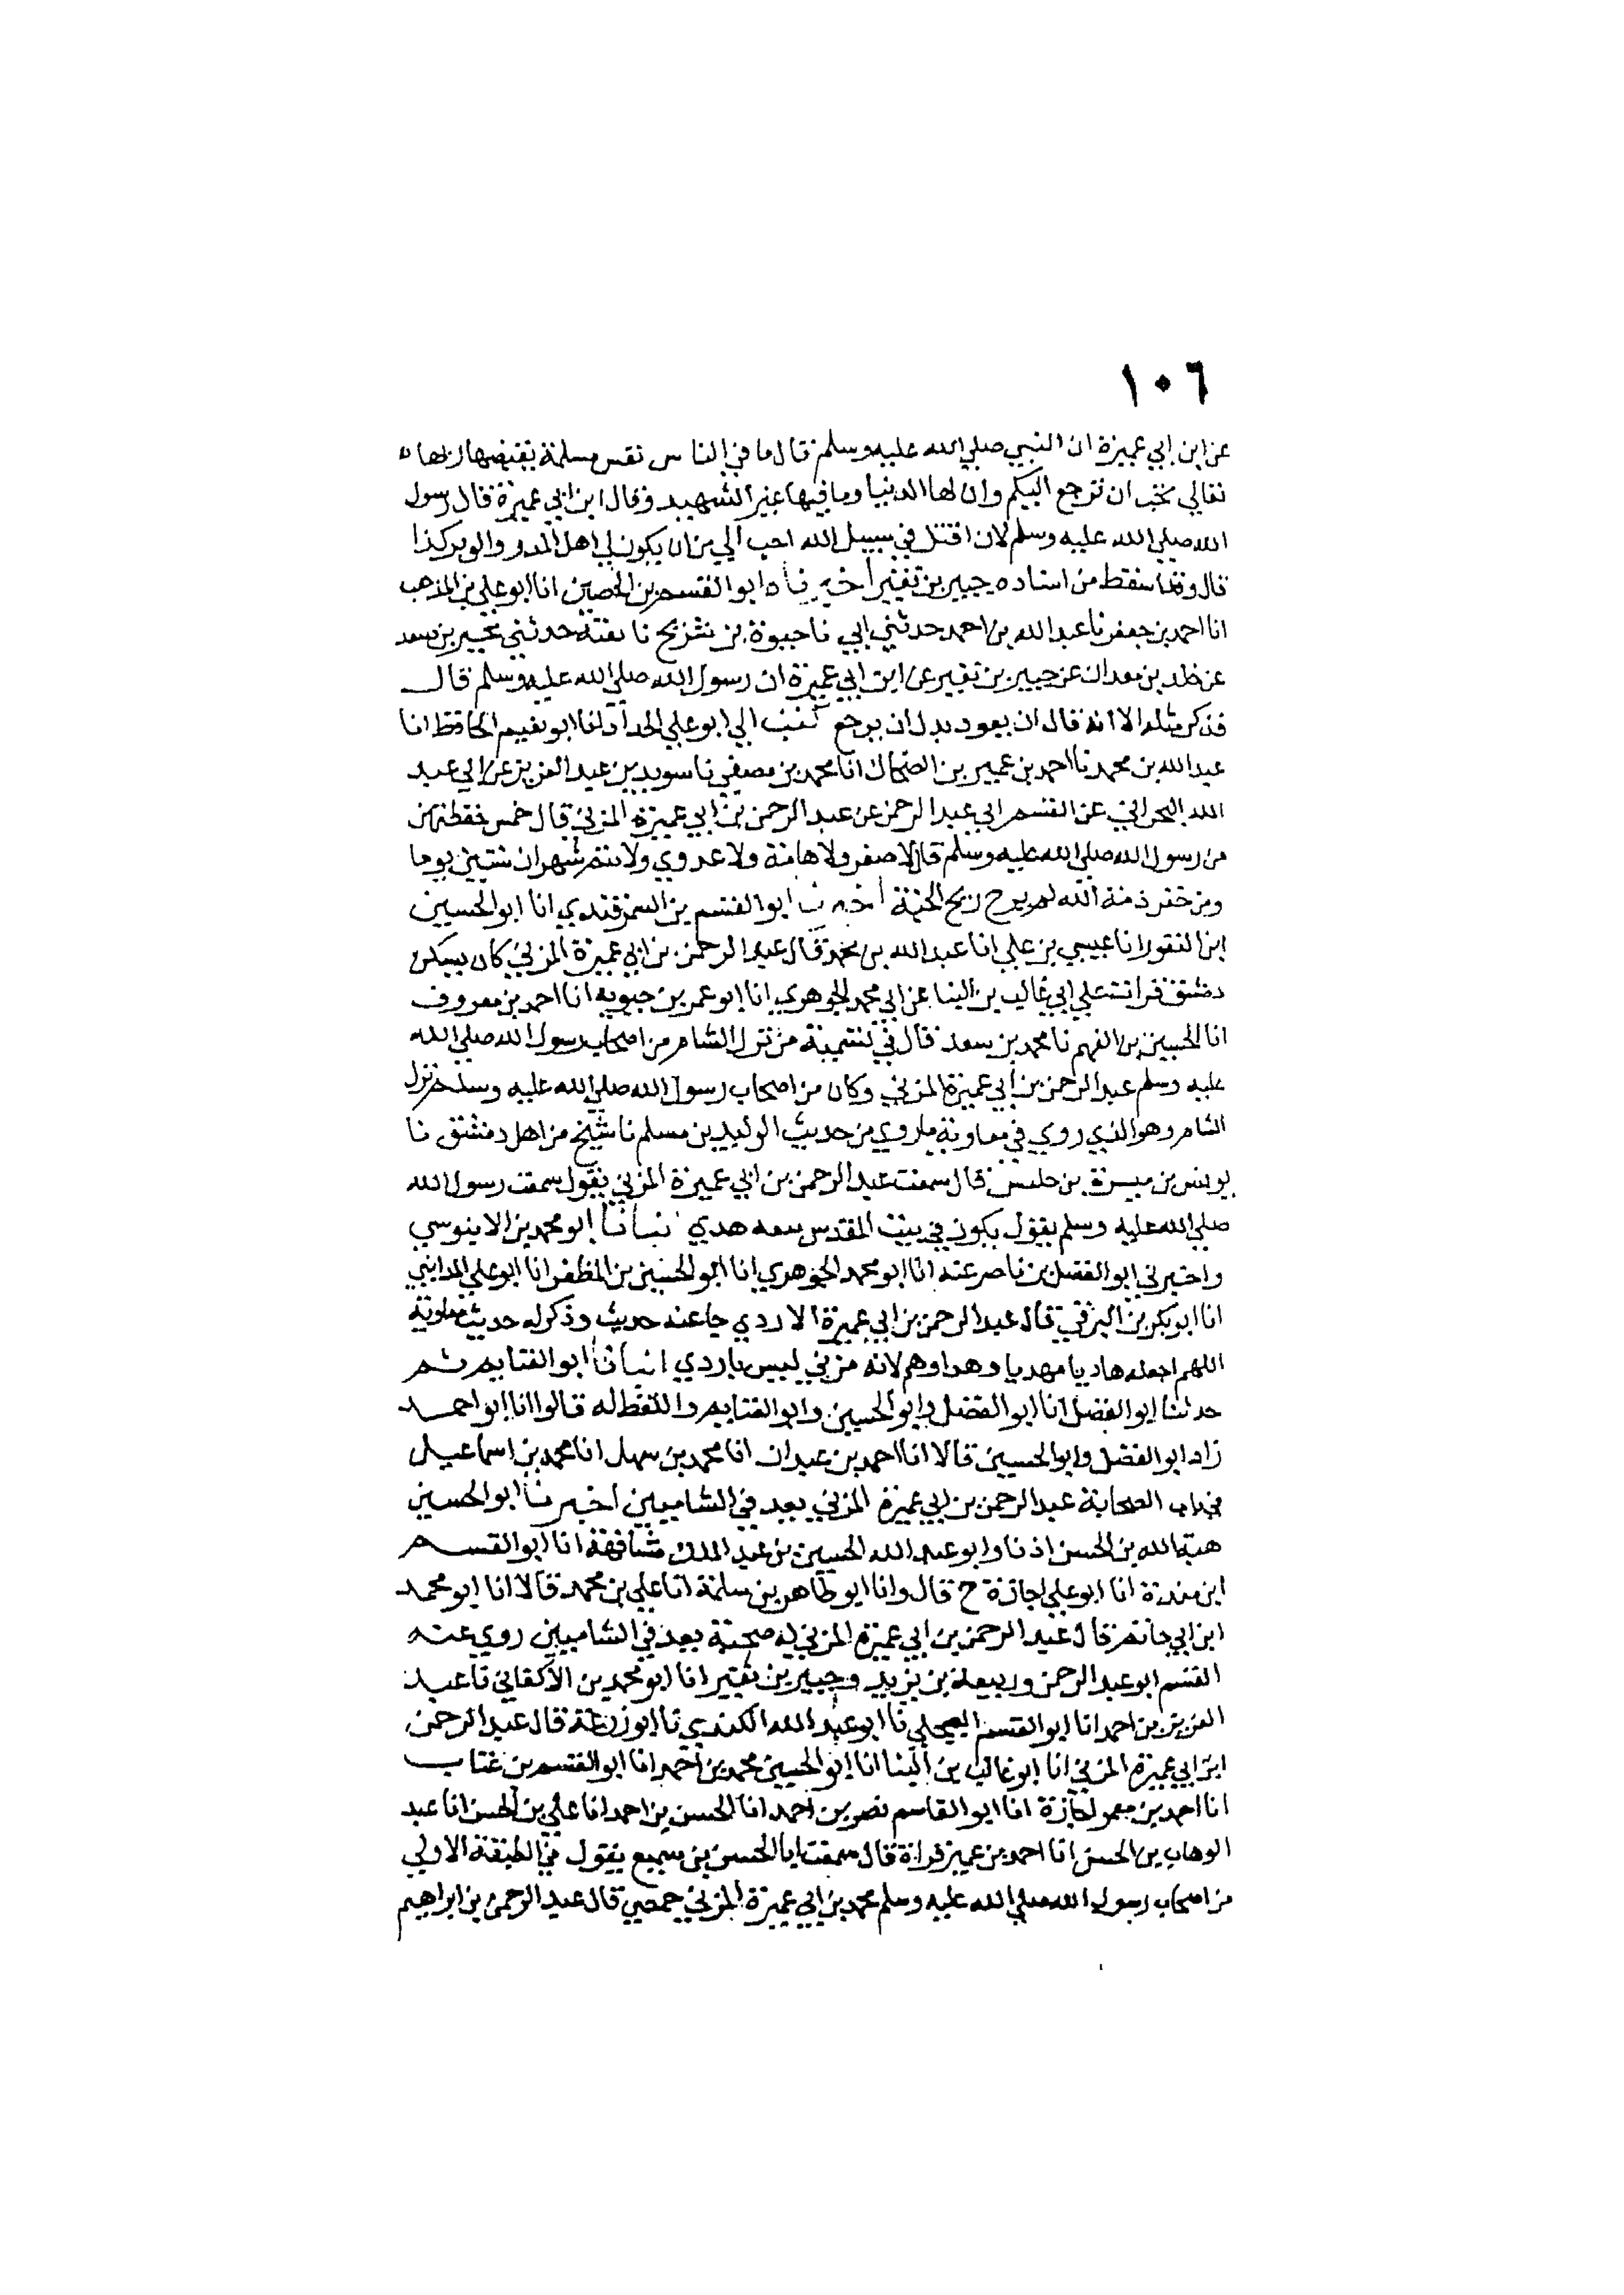 ١٠٦
عن ابن ابي عميرة ان النبي صلي الله عليه وسلم قال ما في الناس نفس مسلمة يقبضها ربها
تعالي تحب ان ترجع اليكم وان لها الدنيا وما فيها غير الشهيد وقال ابن ابي عميرة قال رسول
الله صلي الله عليه وسلم لان اقتل في سبيل الله احب الي من ان يكون لي اهل المدر والوبر كذا
قال وقد اسقط من اسناده جبير بن نفير أخبرناه ابو القسم بن الحصين انا ابو علي بن المذهب
انا احمد بن جعفر نا عبد الله بن احمد حدثني ابي نا حيوة بن شريح نا بقية حدثني بحير بن سعد
عن خلد بن معدان عن جبير بن نفير عن ابن ابي عميرة ان رسول الله صلي الله عليه وسلم قال
فذكر مثله الا انه قال ان يعود بدل ان يرجع كتب الي ابو علي الحداد انا ابو نعيم الحافظ انا
عبد الله بن محمد نا احمد بن عمير بن الضحاك انا محمد بن مصفي نا سويد بن عبد العزيز عن ابي عبد
الله البحراني عن القسم ابي عبد الرحمن عن عبد الرحمن بن ابي عميرة المزني قال خمس حفظتهن
من رسول الله صلي الله عليه وسلم قال لا صفر ولا هامة ولا عدوي ولا يتم شهران ستين يوما
ومن خفر ذمة الله لم يرح ريح الجنة أخبرنا ابو القسم بن السمرقندي انا ابو الحسين
ابن النقور انا عيسي بن علي انا عبد الله بن محمد قال عبد الرحمن بن ابي عميرة المزني كان يسكن
دمشق قرات علي ابي غالب بن البنا عن ابي محمد الجوهري انا ابو عمر بن حيويه انا احمد بن معروف
انا الحسين بن الفهم نا محمد بن سعد قال في تسمية من نزل الشام من اصحاب رسول الله صلي الله
عليه وسلم عبد الرحمن بن ابي عميرة المزني وكان من اصحاب رسول الله صلي الله عليه وسلم نزل
الشام وهو الذي روي في معاوية ما روي من حديث الوليد بن مسلم نا شيخ من اهل دمشق نا
يونس بن ميسرة بن حلبس قال سمعت عبد الرحمن بن ابي عميرة المزني يقول سمعت رسول الله
صلي الله عليه وسلم يقول يكون في بيت المقدس بيعه هدي انبانا ابو محمد بن الابنوسي
واخبرني ابو الفضل بن ناصر عنه انا ابو محمد الجوهري انا ابو الحسين بن المظفر انا ابو علي المدايني
انا ابو بكر بن البرقي قال عبد الرحمن بن ابي عميرة الازدي جا عنه حديث وذكر له حديث معاوية
اللهم اجعله هاديا مهديا وهدا وهم لانه مزني ليس بازدي انبانا ابو الغنايم ثم
حدثنا ابو الفضل انا ابو الفضل وابو الحسين وابو الغنايم واللفظ له قالوا انا ابو احمد
زاد ابو الفضل وابو الحسين قالا انا احمد بن عبدان انا محمد بن سهل انا محمد بن اسماعيل
في باب الصحابة عبد الرحمن بن ابي عميرة المزني يعد في الشاميين اخبرنا ابو الحسين
هبة الله بن الحسن اذنا وابو عبد الله الحسين بن عبد الملك مشافهة انا ابو القسم
ابن مندة انا ابو علي اجازة ح قال وانا ابو طاهر بن سلمة انا علي بن محمد قالا انا ابو محمد
ابن ابي حاتم قال عبد الرحمن بن ابي عميرة المزني له صحبة يعد في الشاميين روي عنه
القسم ابو عبد الرحمن وربيعة بن يزيد وجبير بن نفير انا ابو محمد بن الاكفاني نا عبد
العزيز بن احمد انا ابو القسم البجلي نا ابو عبد الله الكندي نا ابو زرعة قال عبد الرحمن
ابن ابي عميرة المزني انا ابو غالب بن البنا انا ابو الحسين محمد بن احمد انا ابو القسم بن عتاب
انا احمد بن عمير اجازة انا ابو القاسم نصر بن احمد انا الحسن بن احمد انا علي بن الحسن انا عبد
الوهاب بن الحسن انا احمد بن عمير قراة قال سمعت ابا الحسن بن سميع يقول في الطبقة الاولي
من اصحاب رسول الله صلي الله عليه وسلم محمد بن ابي عميرة المزني حمصي قال عبد الرحمن بن ابراهيم